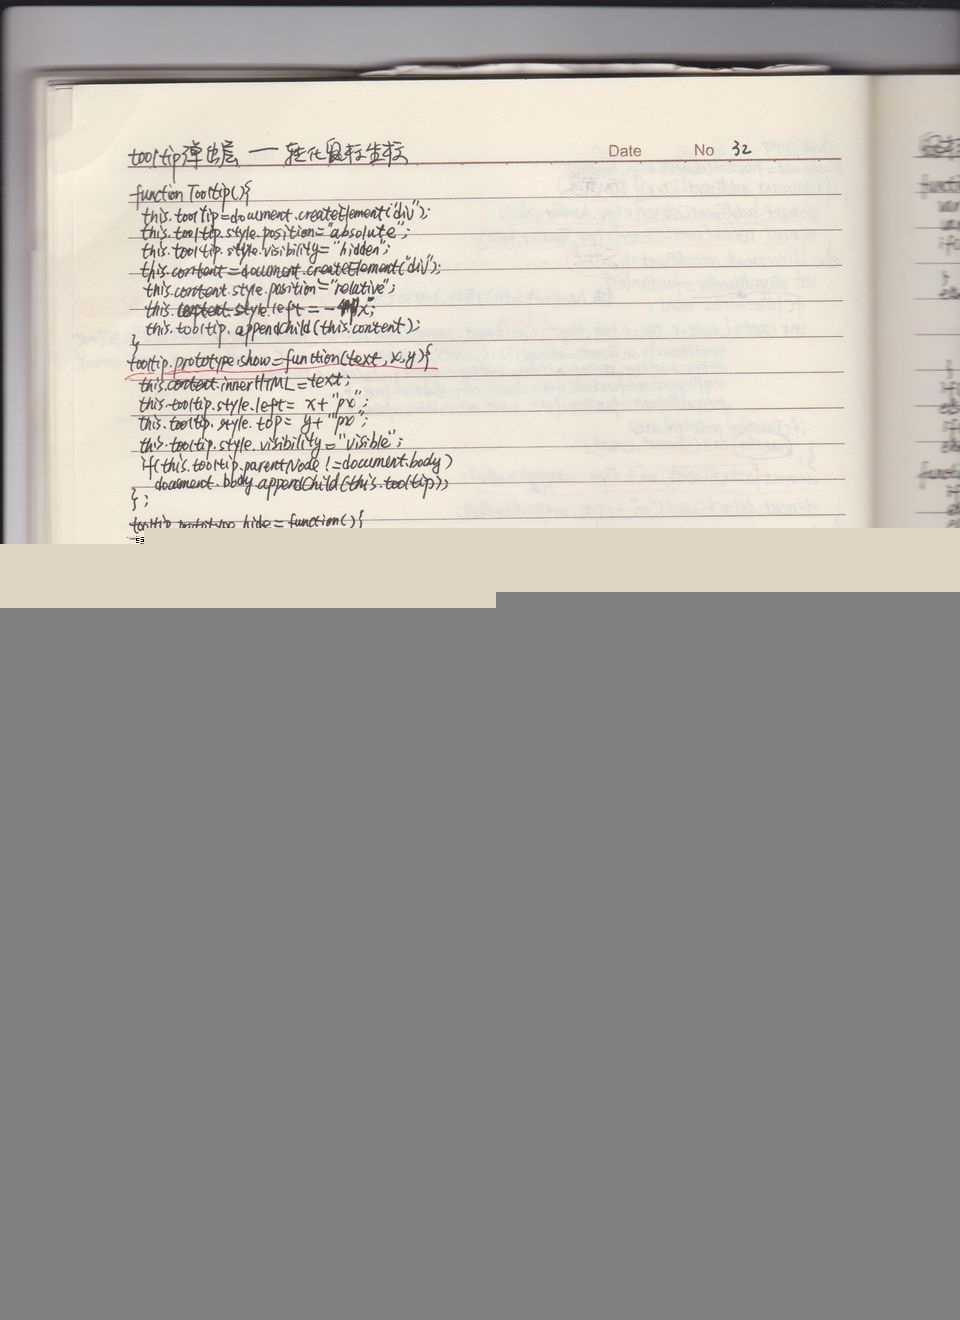 tooltip弹出层 — 转化鼠标坐标
Date No 32
function Tooltip(){
this.tooltip=document.createElement("div");
this.tooltip.style.position="absolute";
this.tooltip.style.visibility="hidden";
this.content=document.createElement("div");
this.content.style.position="relative";
this.content.style.left=-
this.tooltip.appendChild(this.content);
}
tooltip.prototype.show=function(text,x,y){
this.content.innerHTML=text;
this.tooltip.style.left=x+"px";
this.tooltip.style.top=y+"px";
this.tooltip.style.visibility="visible";
if(this.tooltip.parentNode!=document.body)
document.body.appendChild(this.tooltip);
};
tooltip.prototype.hide=function(){